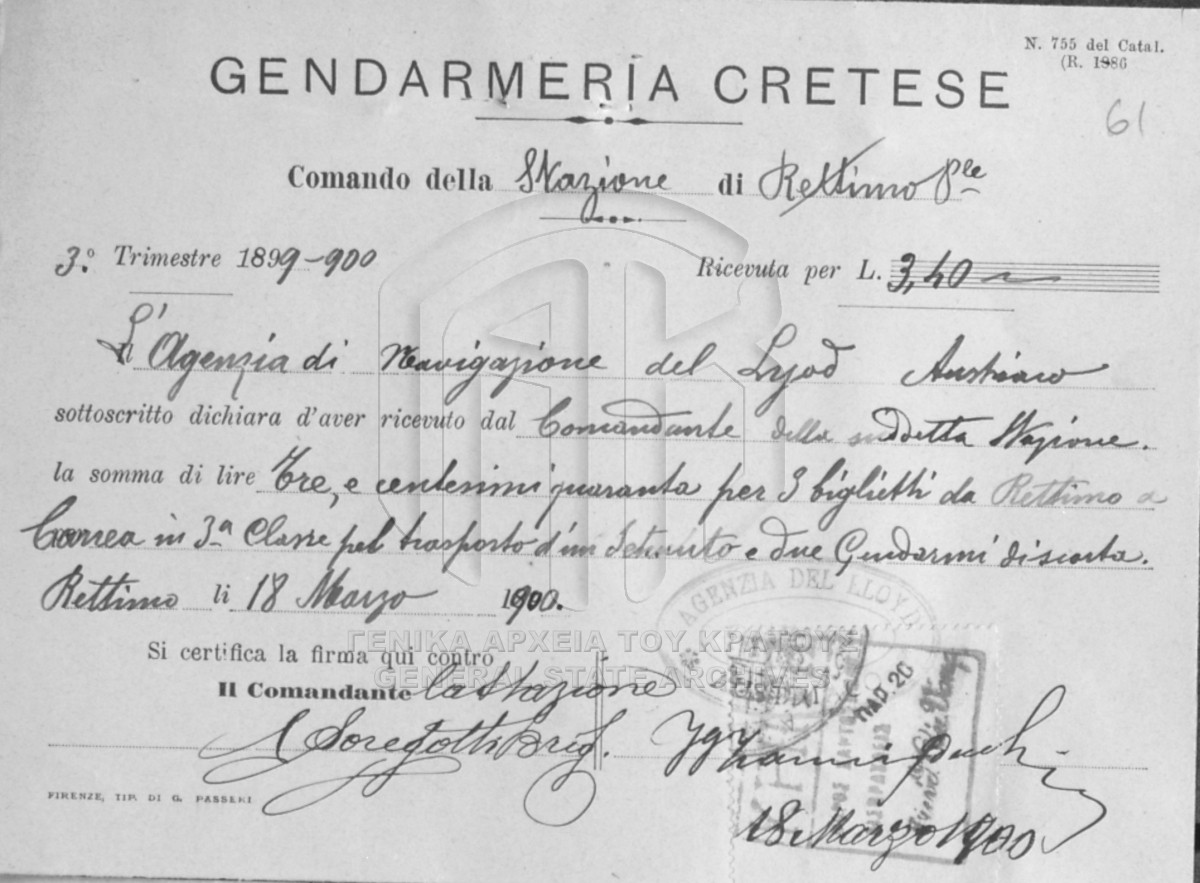 N. 755 del Catal.
(R. 1986
GENDARMERIA CRETESE
61
Comando della Stazione di Rettimo Ple
3.° Trimestre 1899-900
Ricevuta per L. 3,40
L'Agenzia di Navigazione del Lyod Austriaco
sottoscritto dichiara d'aver ricevuto dal Comandante della suddetta Stazione.
la somma di lire Tre, e centesimi quaranta per 3 biglietti da Rettimo a
Canea in 3ª Classe pel trasporto d'un detenuto e due Gendarmi di scorta.
Rettimo li 18 Marzo 1900.
AGENZIA DEL LLOYD
ΓΕΝΙΚΑ ΑΡΧΕΙΑ ΤΟΥ ΚΡΑΤΟΥΣ
Si certifica la firma qui contro
GENERAL STATE ARCHIVES
Il Comandante la Stazione
ΜΑΡ. 20
Brig.
FIRENZE, TIP. DI G. PASSERI
18 Marzo 1900